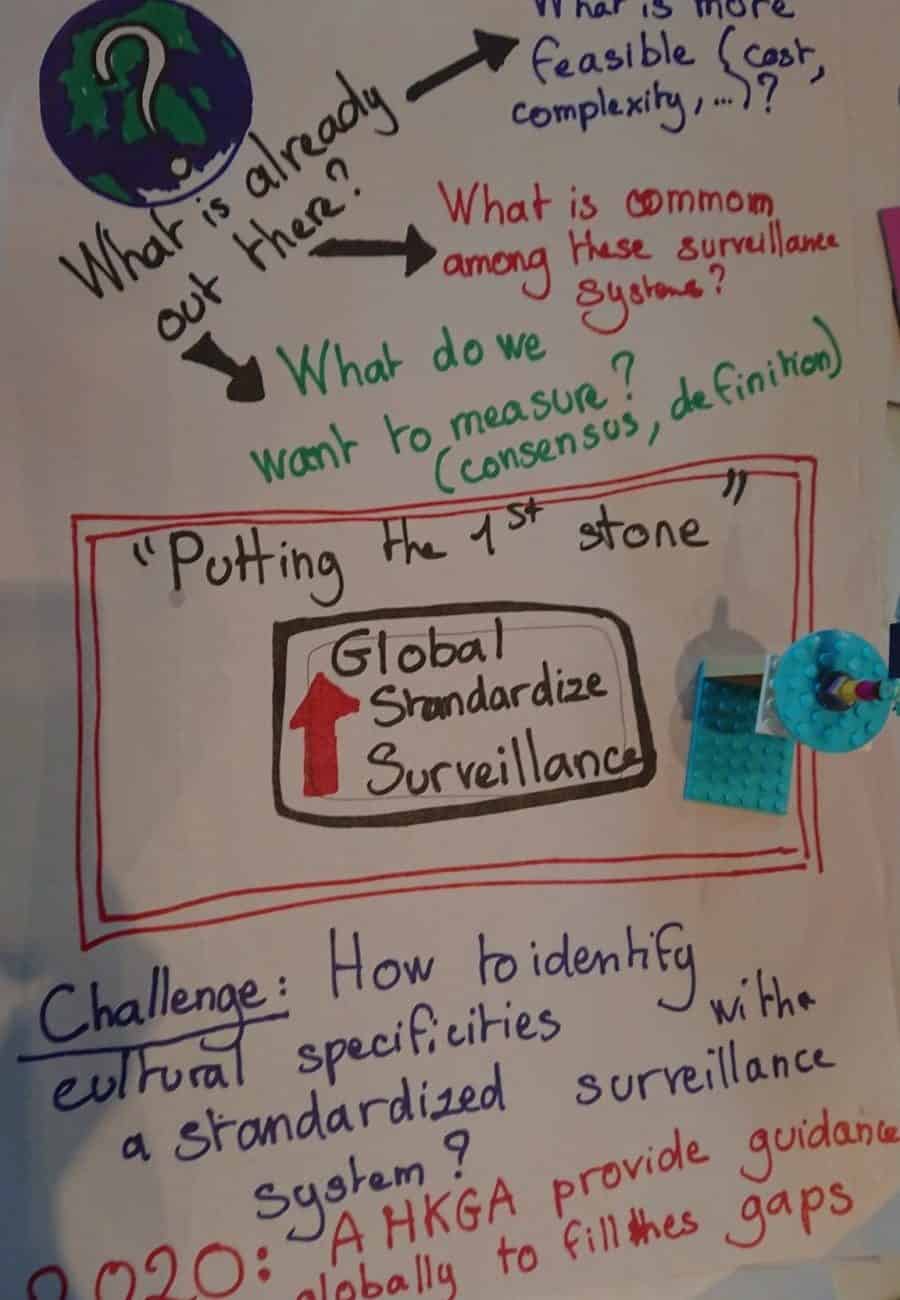 ?
What is more
feasible (cost,
complexity, ...)?
What is already
out there?
What is commom
among these surveillance
systems?
What do we
want to measure?
(consensus, definition)
"Putting the 1st stone"
Global
Standardize
Surveillance
Challenge: How to identify
cultural specificities with a
a standardized surveillance
system?
2020: A HKGA provide guidance
globally to fill thes gaps